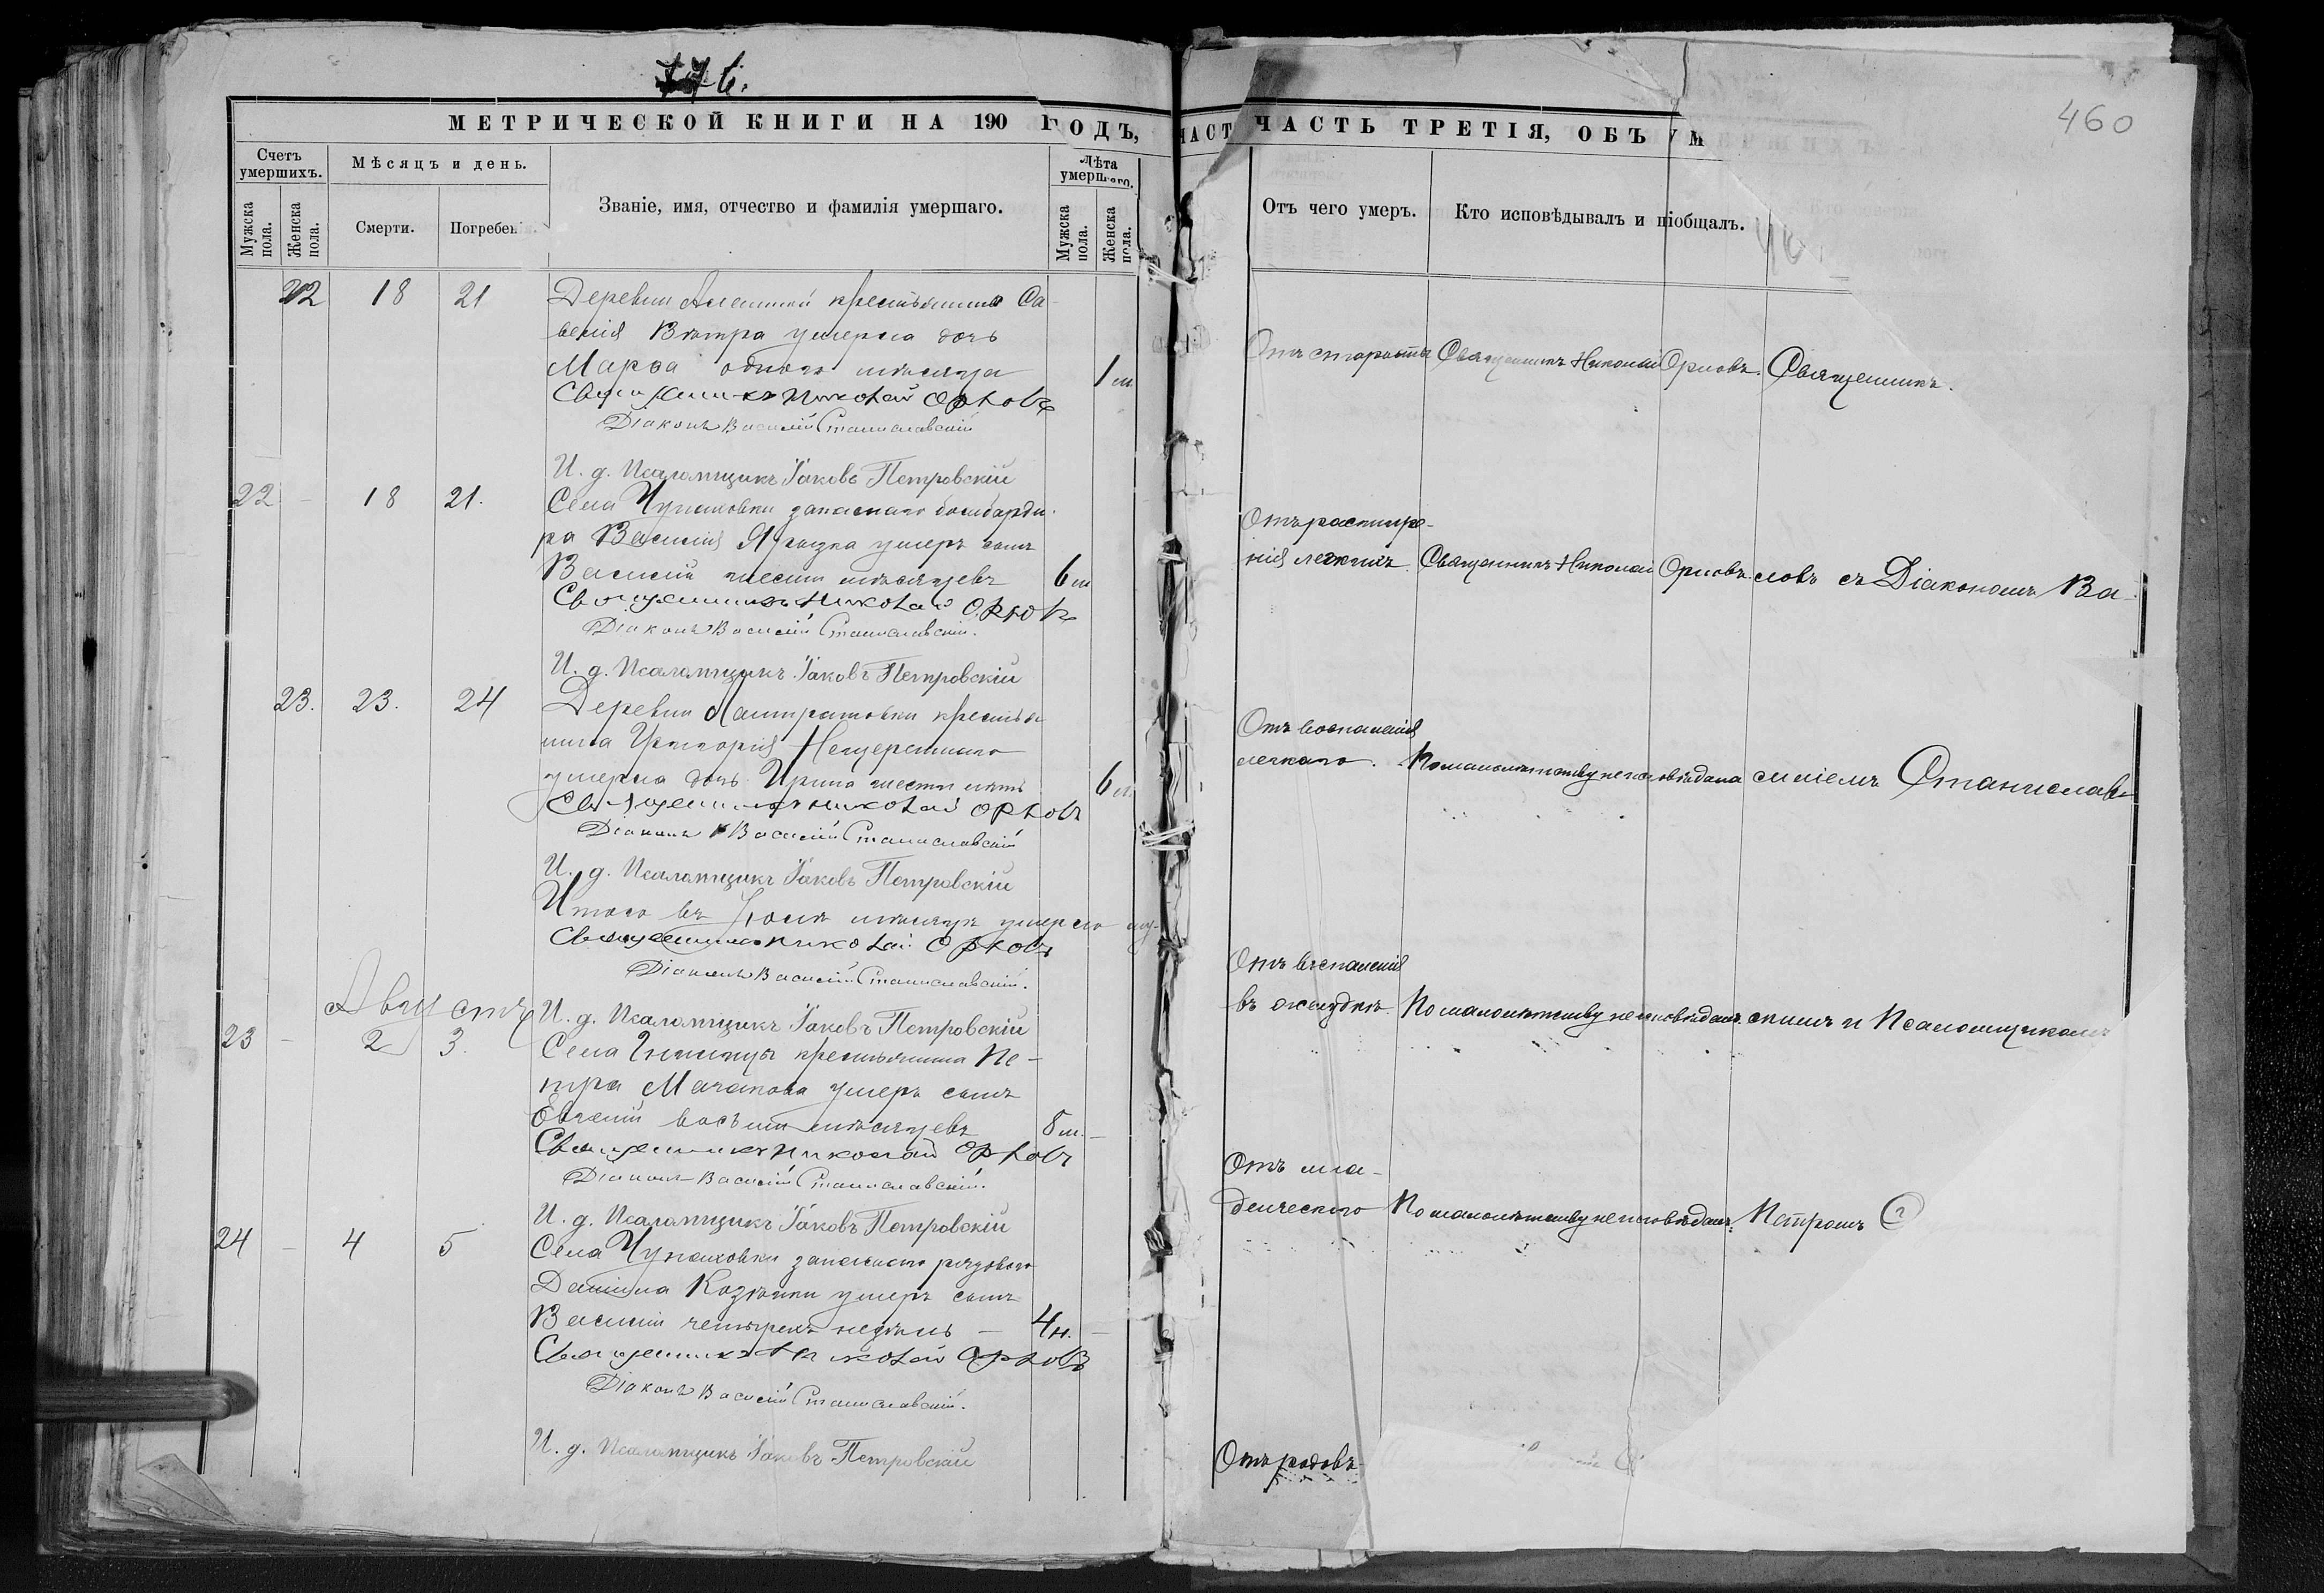 МЕТРИЧЕСКОЙ КНИГИ НА 190 ГОДЪ,
Счетъ умершихъ.
Мѣсяцъ и день.
Званіе, имя, отчество и фамилія умершаго.
Лѣта умершаго.
Мужска пола.
Женска пола.
Смерти.
Погребенія.
Мужска пола.
Женска пола.
22 18 21 Деревни крестьянина Са-
велія Вѣтра умерла дочь
Марѳа одного мѣсяца 1 м
Священникъ Николай Орловъ
Діаконъ Василій Станиславскій
И. д. Псаломщикъ Іаковъ Петровскій
22 - 18 21. Села Чупаховки запаснаго бомбарди-
ра Василія умеръ сынъ
Василій шести мѣсяцевъ 6 м
Священникъ Николай Орловъ
Діаконъ Василій Станиславскій.
И. д. Псаломщикъ Іаковъ Петровскій
23. 23. 24 Деревни крестья
нина Григорія
умерла дочь Ирина шести лѣтъ 6 л.
Священникъ Николай Орловъ
Діаконъ Василій Станиславскій
И. д. Псаломщикъ Іаковъ Петровскій
Итого въ Іюлѣ мѣсяцѣ умерло му-
Священникъ Николай Орловъ
Діаконъ Василій Станиславскій.
Августъ
И. д. Псаломщикъ Іаковъ Петровскій
23 - 2 3. Села крестьянина Пе-
тра умеръ сынъ
Евгеній восьми мѣсяцевъ 8 м. -
Священникъ Николай Орловъ
Діаконъ Василій Станиславскій.
И. д. Псаломщикъ Іаковъ Петровскій
24 - 4 5 Села Чупаховки запаснаго рядового
Даніила умеръ сынъ
Василій четырехъ недѣль - 4 н. -
Священникъ Николай Орловъ
Діаконъ Василій Станиславскій.
И. д. Псаломщикъ Іаковъ Петровскій
460
ЧАСТ
ЧАСТЬ ТРЕТІЯ, ОБЪ УМ
Отъ чего умеръ.
Кто исповѣдывалъ и піобщалъ.
Отъ старости Священникъ Николай Орловъ. Священникъ.
Отъ
нія легкихъ. Священникъ Николай Орловъ. ловъ съ Діакономъ Ва-
Отъ воспаленія
легкаго. По малолѣтству не исповѣдана силіемъ Станислав-
Отъ воспаленія
въ желудкѣ. По малолѣтству не исповѣданъ. скимъ и Псаломщикомъ
Отъ мла-
денческаго По малолѣтству не исповѣданъ. Петромъ С
Отъ родовъ